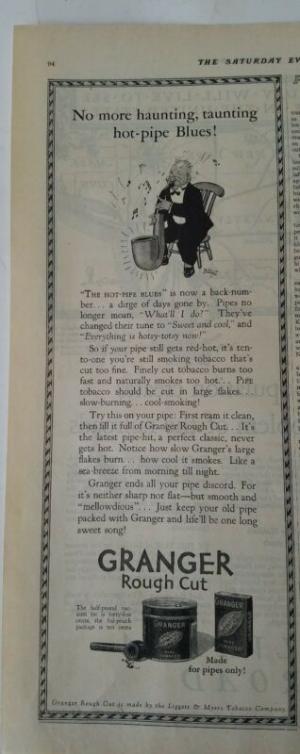 94
THE SATURDAY EV
No more haunting, taunting
hot-pipe Blues!
"THE HOT-PIPE BLUES" is now a back-num-
ber... a dirge of days gone by. Pipes no
longer moan, "What'll I do?" They've
changed their tune to "Sweet and cool," and
"Everything is hotsy-totsy now!"
So if your pipe still gets red-hot, it's ten-
to-one you're still smoking tobacco that's
cut too fine. Finely cut tobacco burns too
fast and naturally smokes too hot... PIPE
tobacco should be cut in large flakes...
slow-burning... cool-smoking!
Try this on your pipe: First ream it clean,
then fill it full of Granger Rough Cut... It's
the latest pipe-hit, a perfect classic, never
gets hot. Notice how slow Granger's large
flakes burn... how cool it smokes. Like a
sea-breeze from morning till night.
Granger ends all your pipe discord. For
it's neither sharp nor flat—but smooth and
"mellowdious"... Just keep your old pipe
packed with Granger and life'll be one long
sweet song!
GRANGER
Rough Cut
The half-pound vac-
uum tin is forty-five
cents, the foil-pouch
package is ten cents
GRANGER
GRANGER
Made
for pipes only!
Granger Rough Cut is made by the Liggett & Myers Tobacco Company